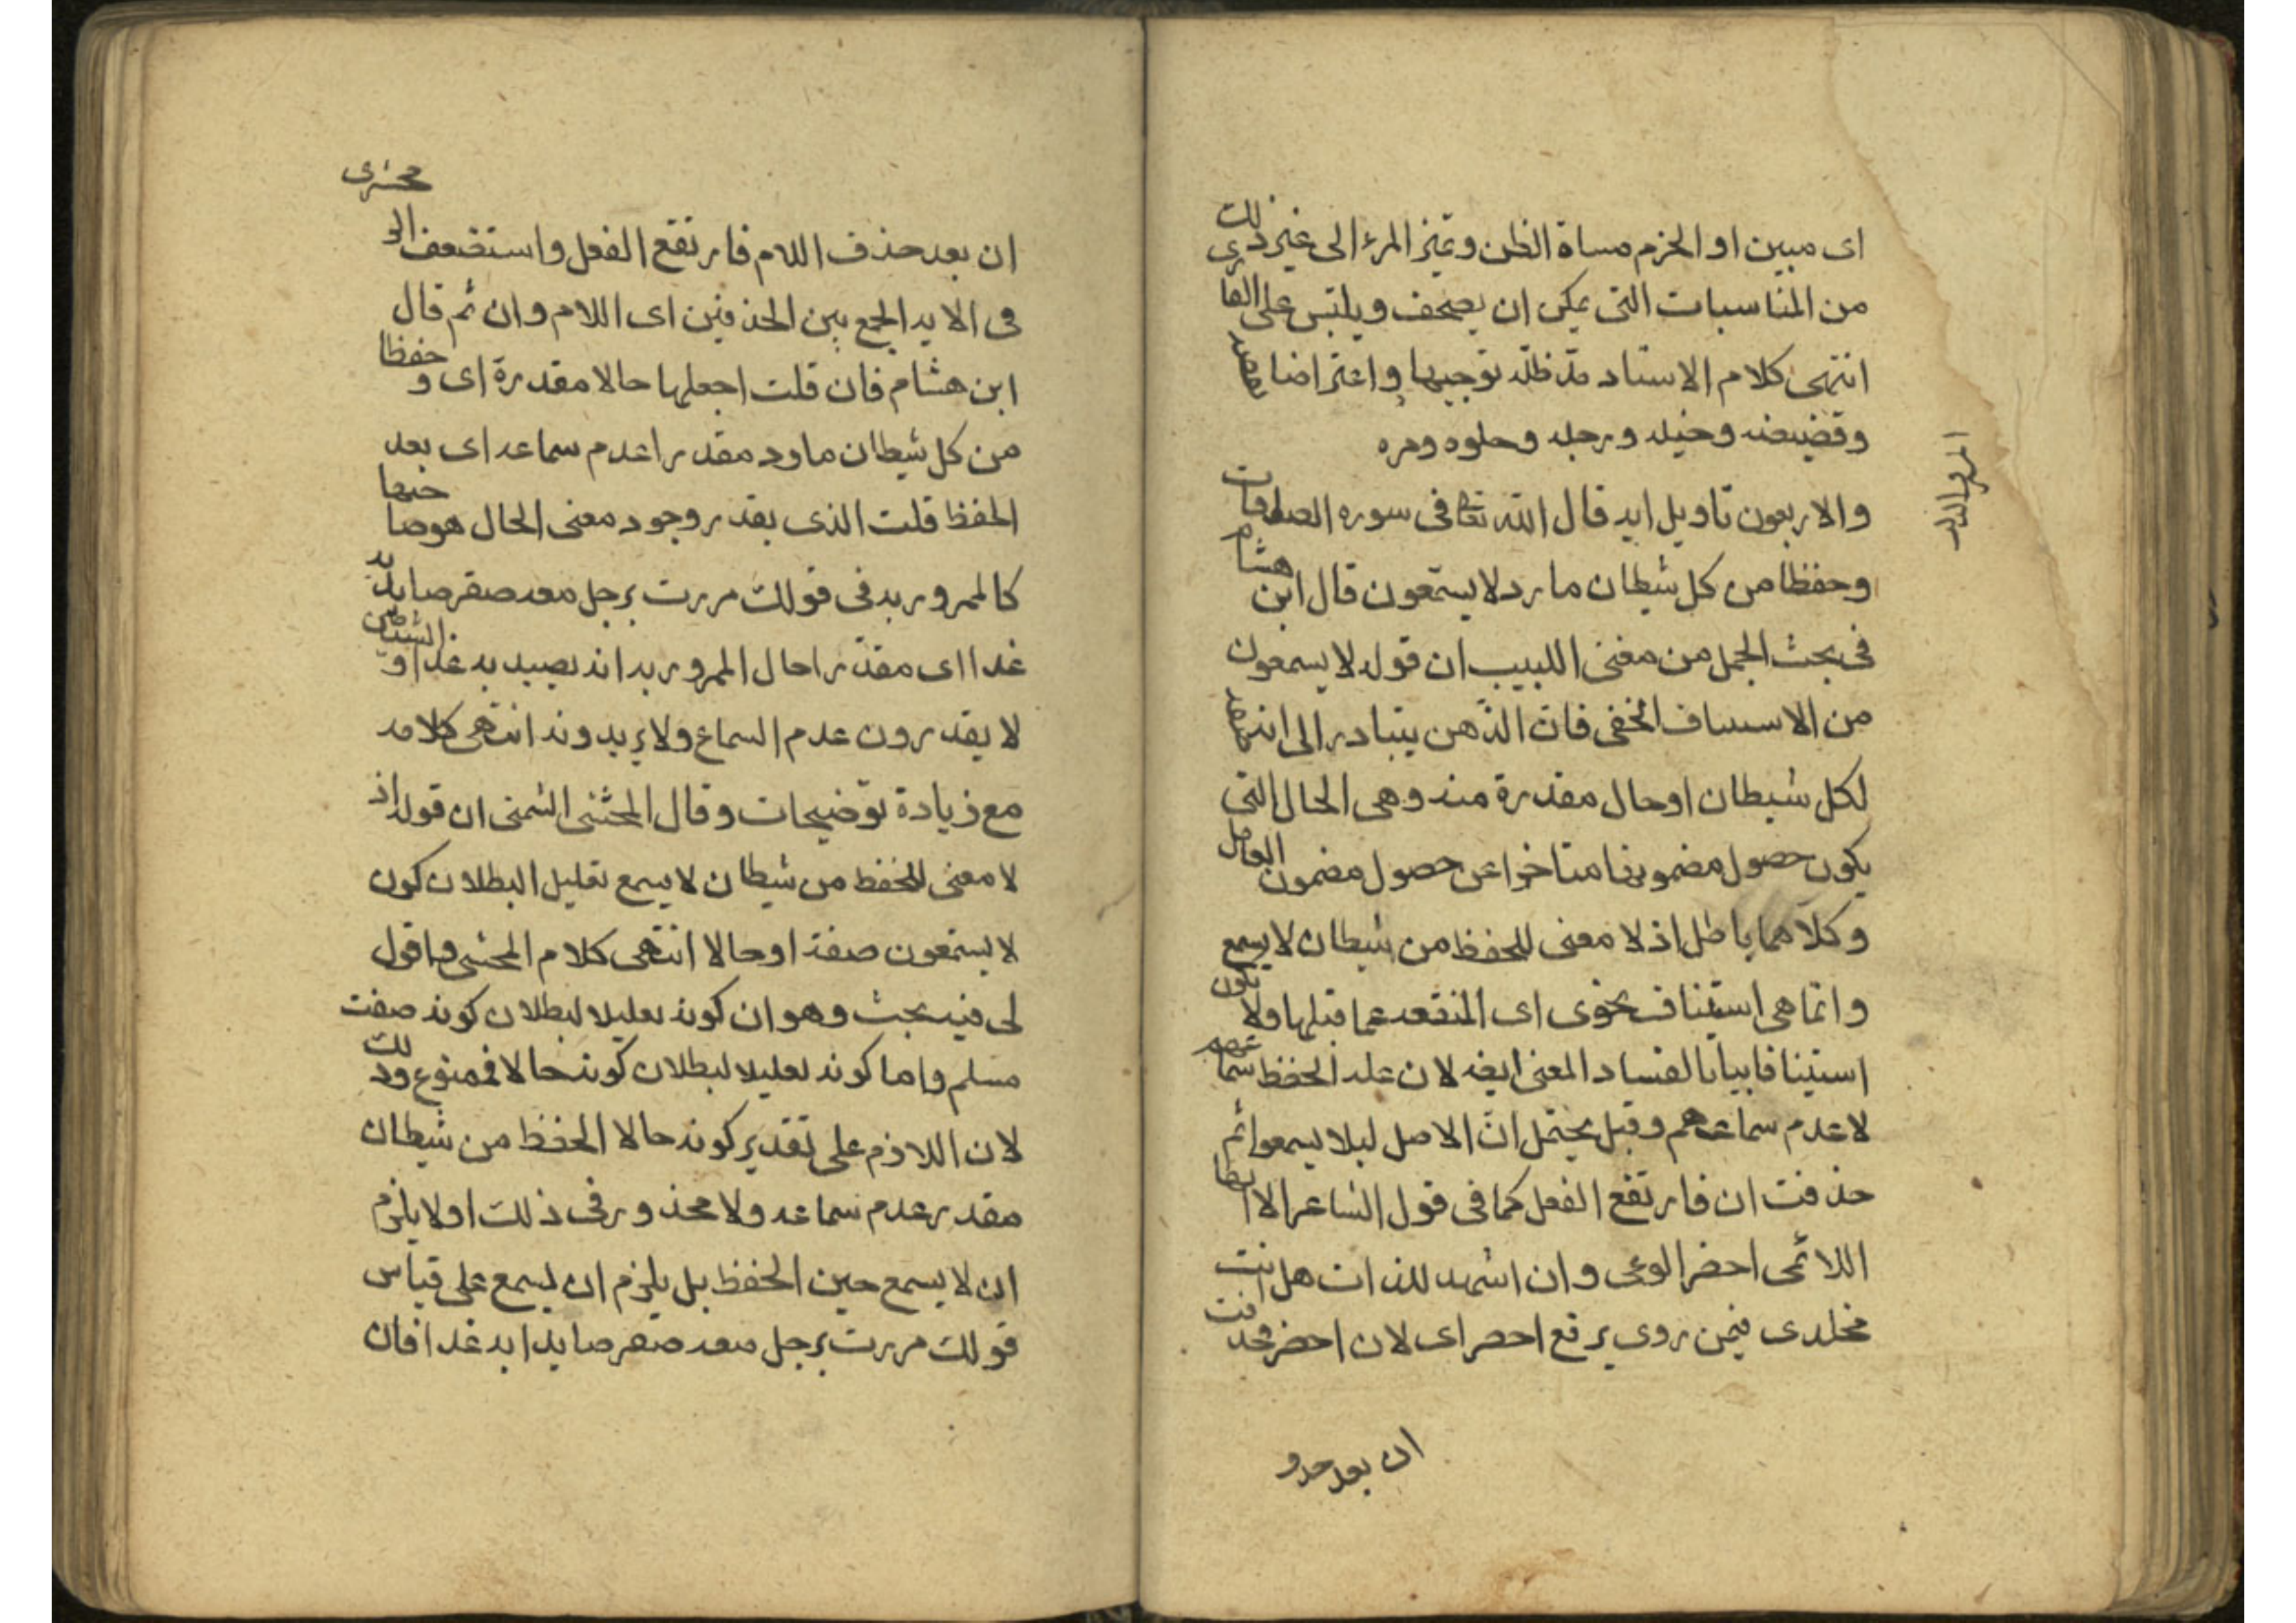 اى مبين او الحزم مساة الظن وتميز المرء الى غير ذلك
من المناسبات التى يمكن ان يصحف ويلتبس على القارى
انتهى كلام الاستاد مد ظله توجيها واعتراضا
وخيله ورجله وحلوه ومره
والاربعون تاويل ايه قال الله تعالى فى سوره الصافات
وحفظا من كل شيطان مارد لا يستمعون قال ابن هشام
فى بحث الجمل من مغنى اللبيب ان قوله لا يسمعون
من الاسيناف الخفى فان الذهن يتبادر الى انه صفه
لكل شيطان او حال مقدرة منه وهى الحال التى
يكون حصول مضمونها متاخرا عن حصول مضمون العامل
وكلاهما باطل اذ لا معنى للحفظ من شيطان لا يسمع
وانما هى استيناف نحوى اى المنقطعه عما قبلها ولا يكون
استينافا بيانا لفساد المعنى ايضا لان عله الحفظ
لا عدم سماعهم وقيل يحتمل ان الاصل ليلا يسمعوا ثم
حذفت ان فارتفع الفعل كما فى قول الشاعر الا ايها
اللائمى احضر الوغى وان اشهد للذات هل انت
مخلدى فيمن روى برفع احضر اى لان احضر فحذفت
ان بعد حذف
ان بعد حذف اللام فارتفع الفعل واستضعف الزمخشرى
فى الايه الجمع بين الحذفين اى اللام وان ثم قال
ابن هشام فان قلت اجعلها حالا مقدرة اى وحفظا
من كل شيطان مارد مقدرا عدم سماعه اى بعد
الحفظ قلت الذى يقدر وجود معنى الحال هو صاحبها
كالممرور به فى قولك مررت برجل معه صقر صايدا به
غدا اى مقدرا حال المرور به انه يصيد به غدا والشياطين
لا يقدرون عدم السماع ولا يريدونه انتهى كلامه
مع زيادة توضيحات وقال المحشى الشمنى ان قوله اذ
لا معنى للحفظ من شيطان لا يسمع تعليل لبطلان كون
لا يستمعون صفة او حالا انتهى كلام المحشى واقول
لى فيه بحث وهو ان كونه تعليلا لبطلان كونه صفت
مسلم واما كونه تعليلا لبطلان كونه حالا فممنوع وذلك
لان اللازم على تقدير كونه حالا الحفظ من شيطان
مقدر عدم سماعه ولا محذور فى ذلك اولا يلزم
ان لا يسمع حين الحفظ بل يلزم ان يسمع على قياس
قولك مررت برجل معه صقر صايدا به غدا فان